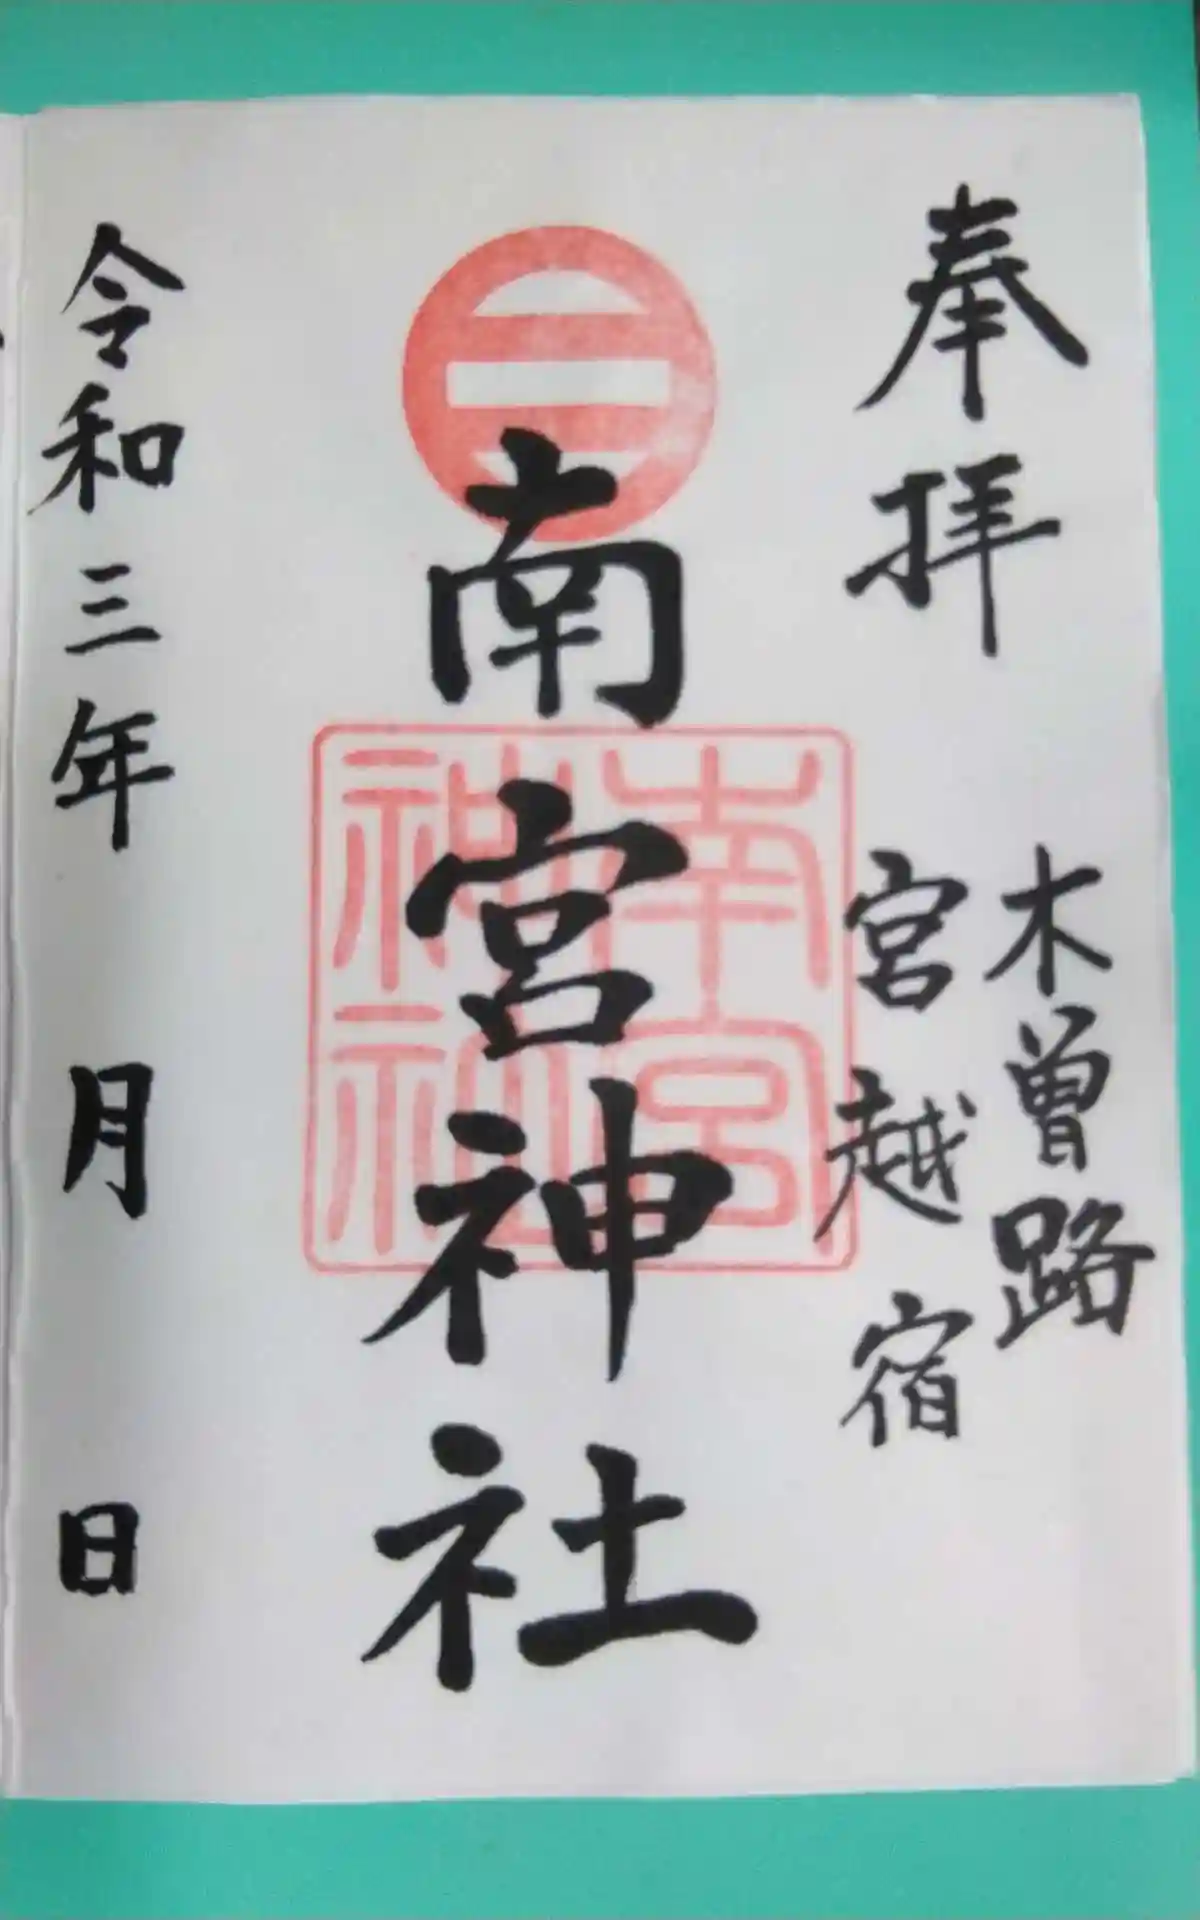 奉拝
木曽路
宮越宿
南宮神社
南宮
神社
令和三年 月 日